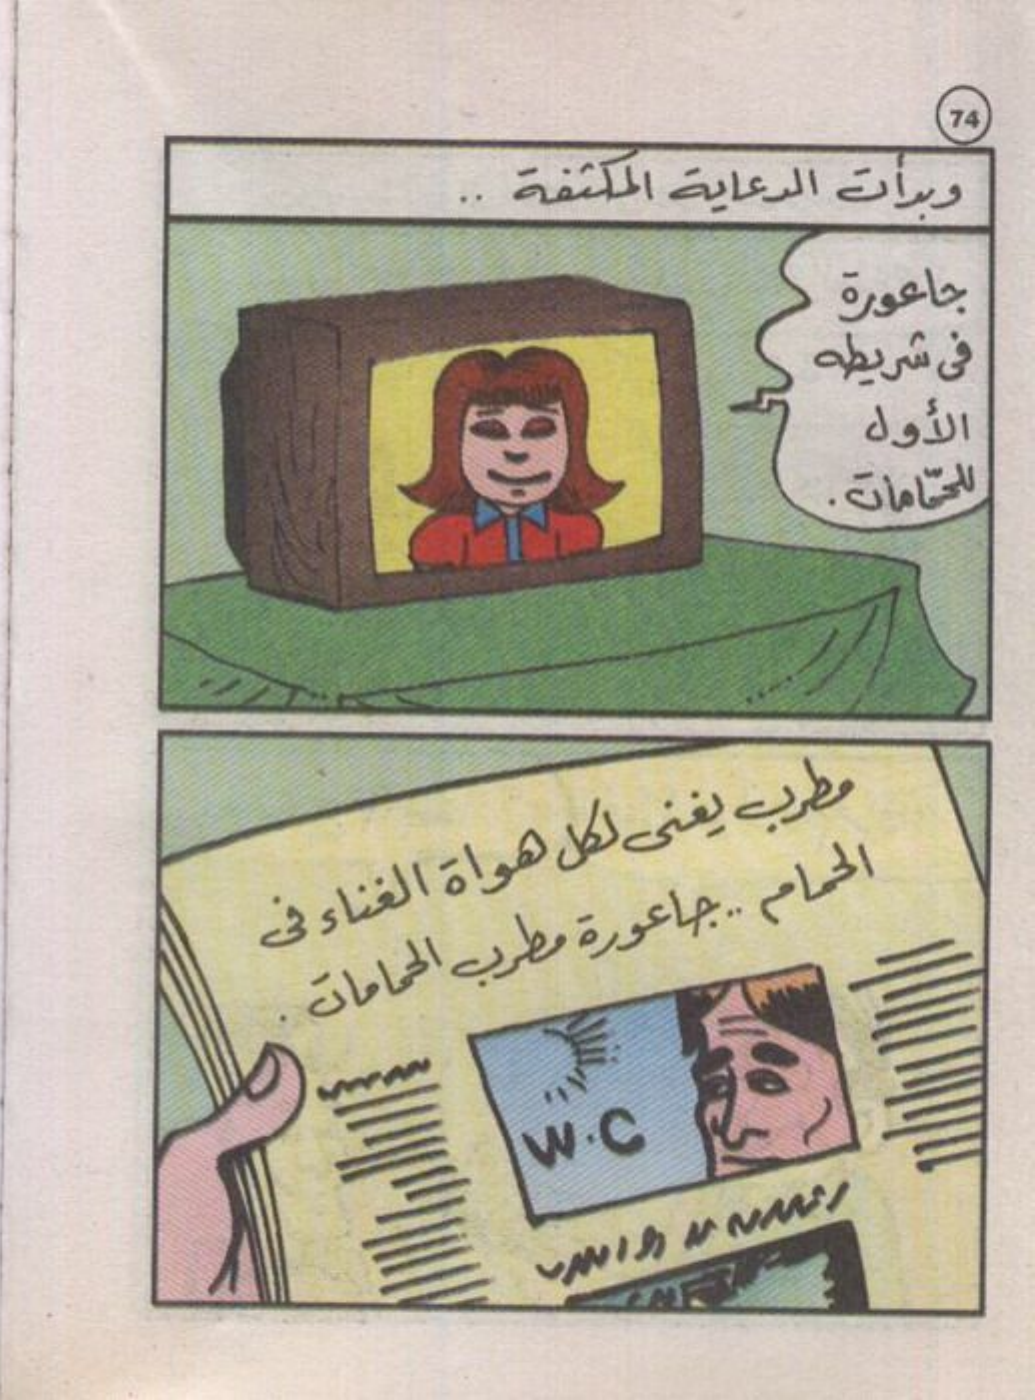 74
وبدأت الدعاية المكثفة ..
جاعورة
فى شريطه
الأول
للحمّامات .
مطرب يغنى لكل هواة الغناء فى
الحمام .. جاعورة مطرب الحمامات .
W.C